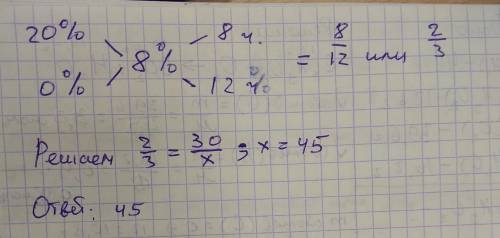 20% 8 ч. 8/12 или 2/3
8% =
0% 12 ч.
Решаем 2/3 = 30/x ; x = 45
Ответ: 45